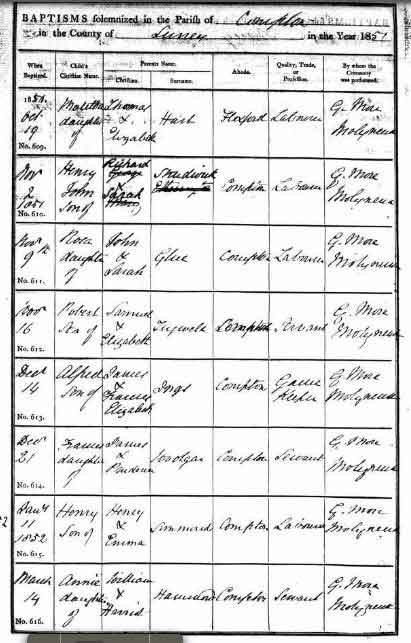 BAPTISMS solemnized in the Parish of Compton
in the County of Surrey in the Year 1851
When Baptized. Child's Christian Name. Parents Name. Christian. Surname. Abode. Quality, Trade, or Profession. By whom the Ceremony was performed.
1851. Octr 19 No. 609. daughter of Thomas & Elizabeth Hart Labourer G. More Molyneux
Novr 2 1851 No. 610. Henry John Son of Richard & Sarah Compton Labourer G. More Molyneux
Novr 9th No. 611. Rosa daughter of John & Sarah Glue Compton Labourer G. More Molyneux
Novr 16 No. 612. Robert Son of Samuel & Elizabeth Compton Servant G. More Molyneux
Decr 14 No. 613. Alfred Son of James & Frances Elizabeth Ings Compton Game Keeper G More Molyneux
Decr 21 No. 614. Frances daughter of James & Compton Servant G. More Molyneux
Jany 11 1852 No. 615. Henry Son of Henry & Emma Compton Labourer G. More Molyneux
March 14 No. 616. Annie daughter of William & Hammond Compton Servant G. More Molyneux